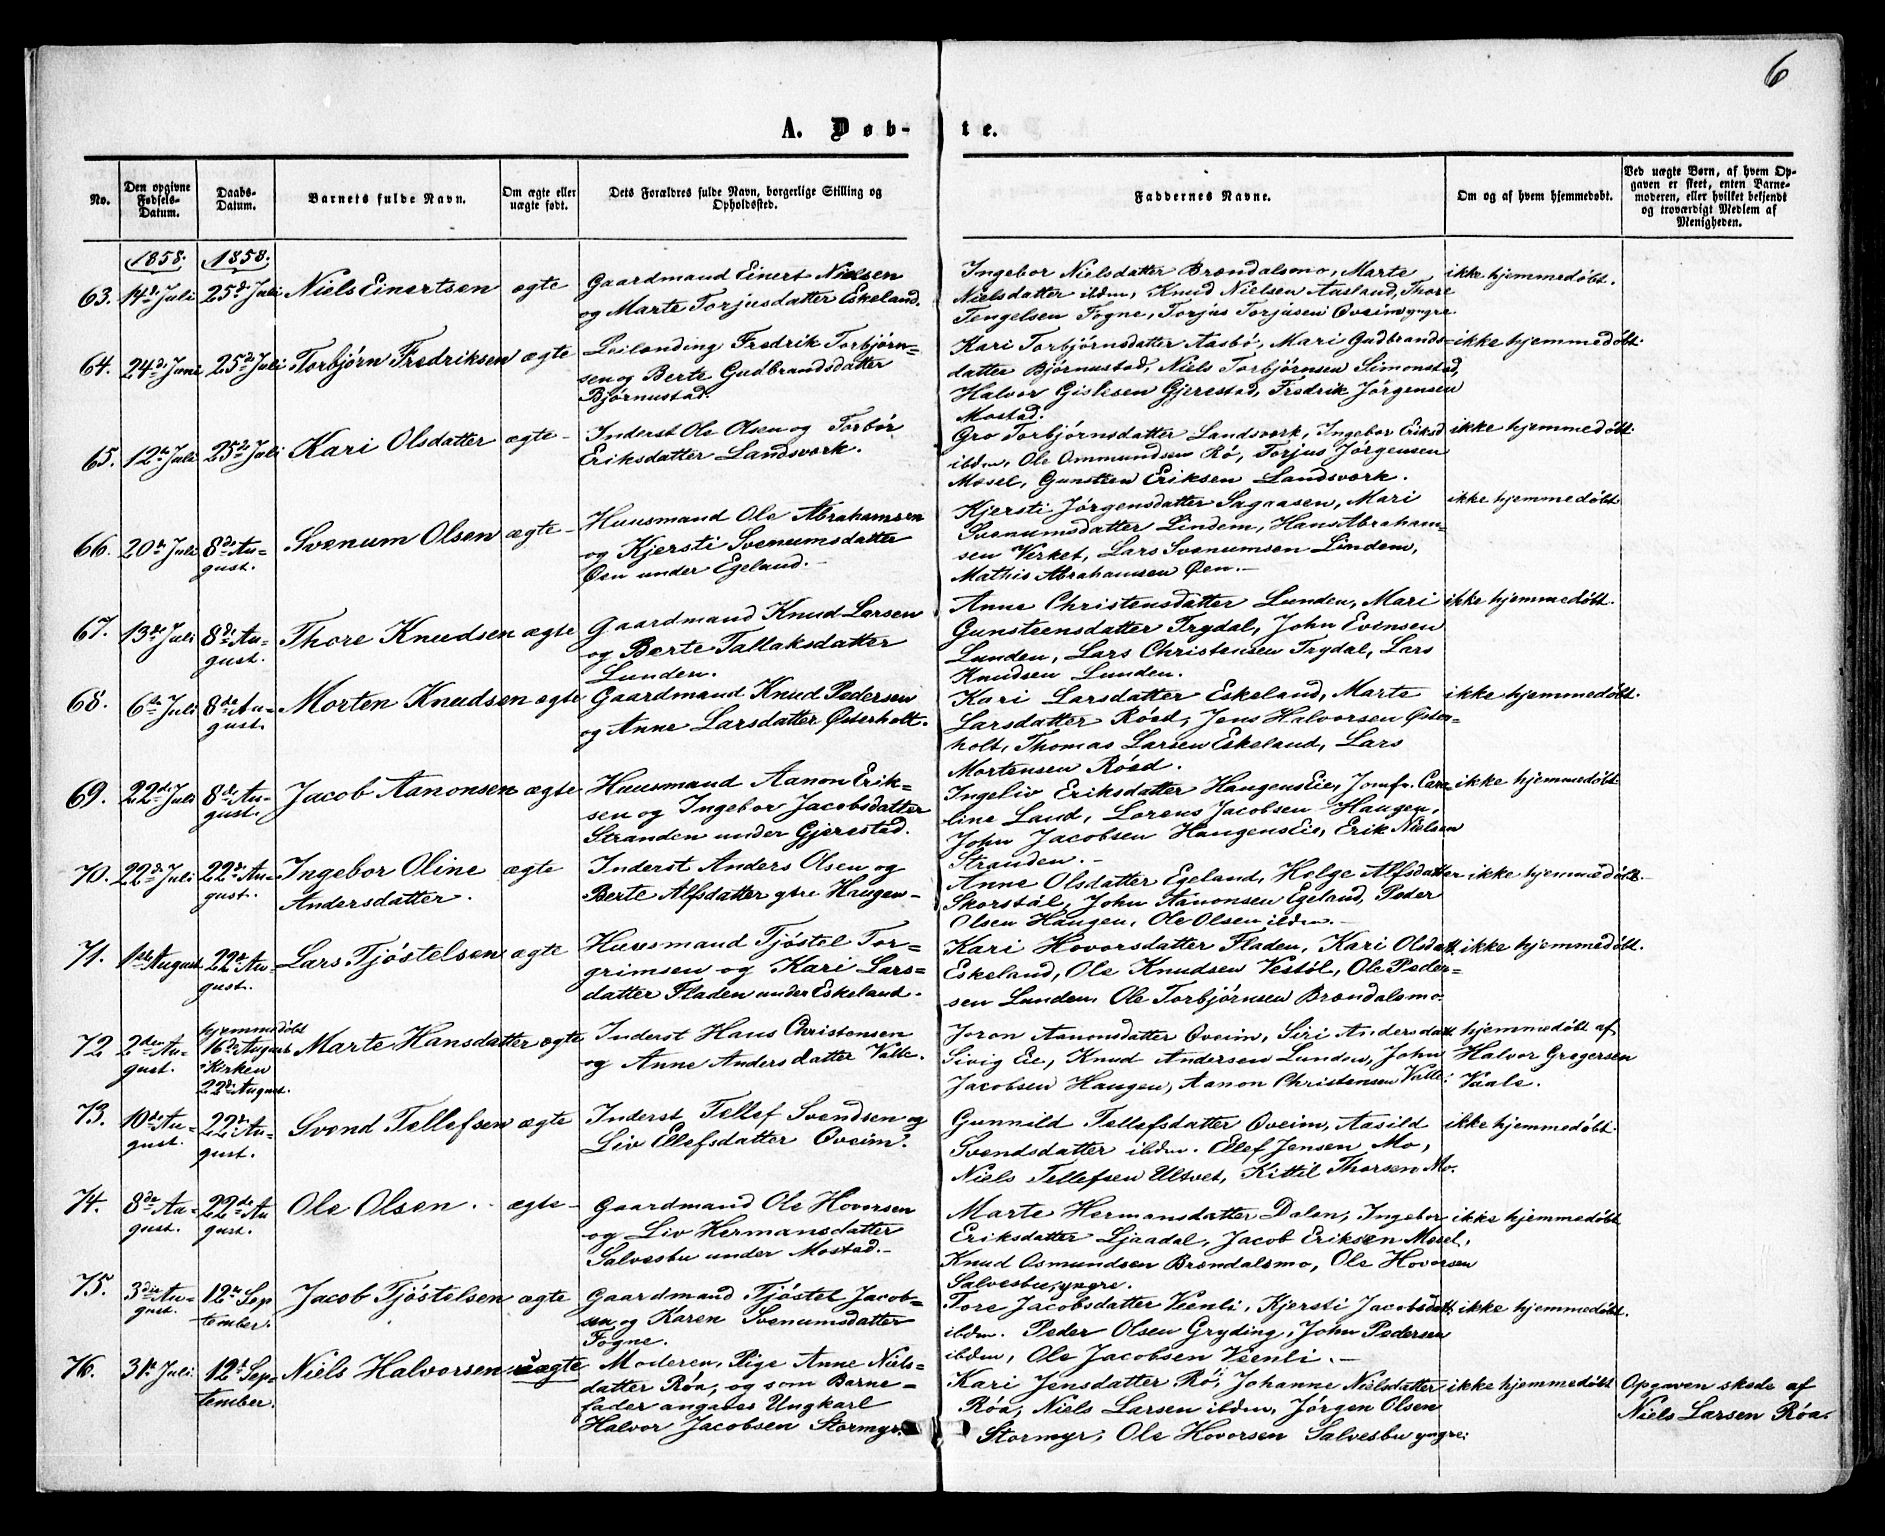 6
A. Døb-te.
No.
Den opgivne
Fødsels-
Datum.
Daabs-
Datum.
Barnets fulde Navn.
Om ægte eller
uægte født.
Dets Forældres fulde Navn, borgerlige Stilling og
Opholdssted.
Faddernes Navne.
Om og af hvem hjemmedøbt.
Ved uægte Børn, af hvem Op-
gaven er skeet, enten Barne-
moderen, eller hvilket bekjendt
og troværdigt Medlem af
Menigheden.
1858. 1858.
63. 14de Juli 25de Juli Niels Einertsen ægte
Gaardmand Einert Nielsen
og Marte Torjusdatter Eskeland.
Ingebor Nielsdatter Brøndalsmo, Marte
Nielsdatter ibdm, Knud Nielsen Aasland, Thore
Tengelsen Fogne, Torjus Torjusen Oveim yngre.
ikke hjemmedøbt.
64. 24de Juni 25de Juli Torbjørn Fredriksen ægte
Leilending Fredrik Torbjørn-
sen og Berte Gudbrandsdatter
Bjørnustad.
Kari Torbjørnsdatter Aasbø, Mari Gudbrands-
datter Bjørnustad, Niels Torbjørnsen Simonstad,
Halvor Gislesen Gjerestad, Fredrik Jørgensen
Mostad.
ikke hjemmedøbt.
65. 12te Juli 25de Juli Kari Olsdatter ægte
Inderst Ole Olsen og Torbør
Eriksdatter Landsverk.
Gro Torbjørnsdatter Landsverk, Ingebor Eriksd
ibdm, Ole Ommundsen Rø, Torjus Jørgensen
Mesel, Gunsten Eriksen Landsverk.
ikke hjemmedøbt
66. 20de Juli 8de Au-
gust. Svenum Olsen ægte
Huusmand Ole Abrahamsen
og Kjersti Svenumsdatter
Øen under Egeland.
Kjersti Jørgensdatter Sagaasen, Mari
Svenumsdatter Lindem, Hans Abraham-
sen Verket, Lars Svenumsen Lindem,
Mathis Abrahamsen Øen.
ikke hjemmedøbt
67. 13de Juli 8de Au-
gust. Thore Knudsen ægte
Gaardmand Knud Larsen
og Berte Tallaksdatter
Lunden.
Anne Christensdatter Lunden, Mari
Gunsteensdatter Trydal, John Evensen
Lunden, Lars Christensen Trydal, Lars
Knudsen Lunden.
ikke hjemmedøbt.
68. 6te Juli 8de Au-
gust. Morten Knudsen ægte
Gaardmand Knud Pedersen
og Anne Larsdatter Østerholt.
Kari Larsdatter Eskeland, Marte
Larsdatter Røed, Jens Halvorsen Øster-
holt, Thomas Larsen Eskeland, Lars
Mortensen Røed.
ikke hjemmedøbt.
69. 22de Juli 8de Au-
gust. Jacob Aanonsen ægte
Huusmand Aanon Erik-
sen og Ingebor Jacobsdatter
Stranden under Gjerestad.
Ingeliv Eriksdatter Haugens Eie, Jomfr. Caro-
line Lund, Lorens Jacobsen Haugen,
John Jacobsen Haugens Eie, Erik Nielsen
Stranden.
ikke hjemmedøbt
70. 22de Juli 22de Au-
gust. Ingebor Oline
Andersdatter. ægte
Inderst Anders Olsen og
Berte Alfsdatter Haugen
Anne Olsdatter Egeland, Helge Alfsdatter
Skorstøl, John Aanonsen Egeland, Peder
Olsen Haugen, Ole Olsen ibdm.
ikke hjemmedøbt.
71. 1ste August 22de Au-
gust. Lars Tjøstelsen ægte
Huusmand Tjøstel Tor-
grimsen og Kari Lars-
datter Fladen under Eskeland.
Kari Hovorsdatter Fladen, Kari Olsdatt.
Eskeland, Ole Knudsen Vestøl, Ole Peder-
sen Lunden, Ole Torbjørnsen Brøndalsmo
ikke hjemmedøbt.
72 2den Au-
gust. hjemmedøbt
16de August
Kirken
22de August. Marte Hansdatter ægte
Inderst Hans Christensen
og Anne Andersdatter Valle.
Joron Aanonsdatter Oveim, Siri Andersdatt
Sivig Eie, Knud Andersen Lunden, John
Jacobsen Haugen, Aanon Christensen Valle.
hjemmedøbt af
Halvor Gregersen
Vaale.
73. 10de Au-
gust. 22de Au-
gust. Svend Tellefsen ægte
Inderst Tellef Svendsen og
Liv Ellefsdatter Oveim.
Gunnild Tellefsdatter Oveim, Aasild
Svendsdatter ibdm. Ellef Jensen Mo,
Niels Tellefsen Ulvet, Kittil Thorsen Mo.
ikke hjemmedøbt.
74. 8de Au-
gust. 22de Au
gust. Ole Olsen. ægte
Gaardmand Ole Hovorsen
og Liv Hermansdatter
Salvesbu under Mostad.
Marte Hermansdatter Dalen, Ingebor
Eriksdatter Ljaadal, Jacob Eriksen Mesel,
Knud Osmundsen Brøndalsmo, Ole Hovorsen
Salvesbu, yngre.
ikke hjemmedøbt
75. 3die Au-
gust. 12te Sep
tember. Jacob Tjøstelsen ægte
Gaardmand Tjøstel Jacob-
sen og Karen Svenumsdatter
Fogne.
Tore Jacobsdatter Veenli, Kjersti Jacobsdatt.
ibdm. Peder Olsen Gryding, John Pedersen
ibdm, Ole Jacobsen Veenli.
ikke hjemmedøbt.
76. 31te Juli 12te Sep-
tember. Niels Halvorsen uægte
Moderen, Pige Anne Niels-
datter Røa, og som Barne-
fader angaves Ungkarl
Halvor Jacobsen Stormyr.
Kari Jensdatter Rø, Johanne Nielsdatter
Røa, Niels Larsen ibdm, Jørgen Olsen
Stormyr, Ole Hovorsen Salvesbu yngre.
ikke hjemmedøbt
Opgaven skede af
Niels Larsen Røa.